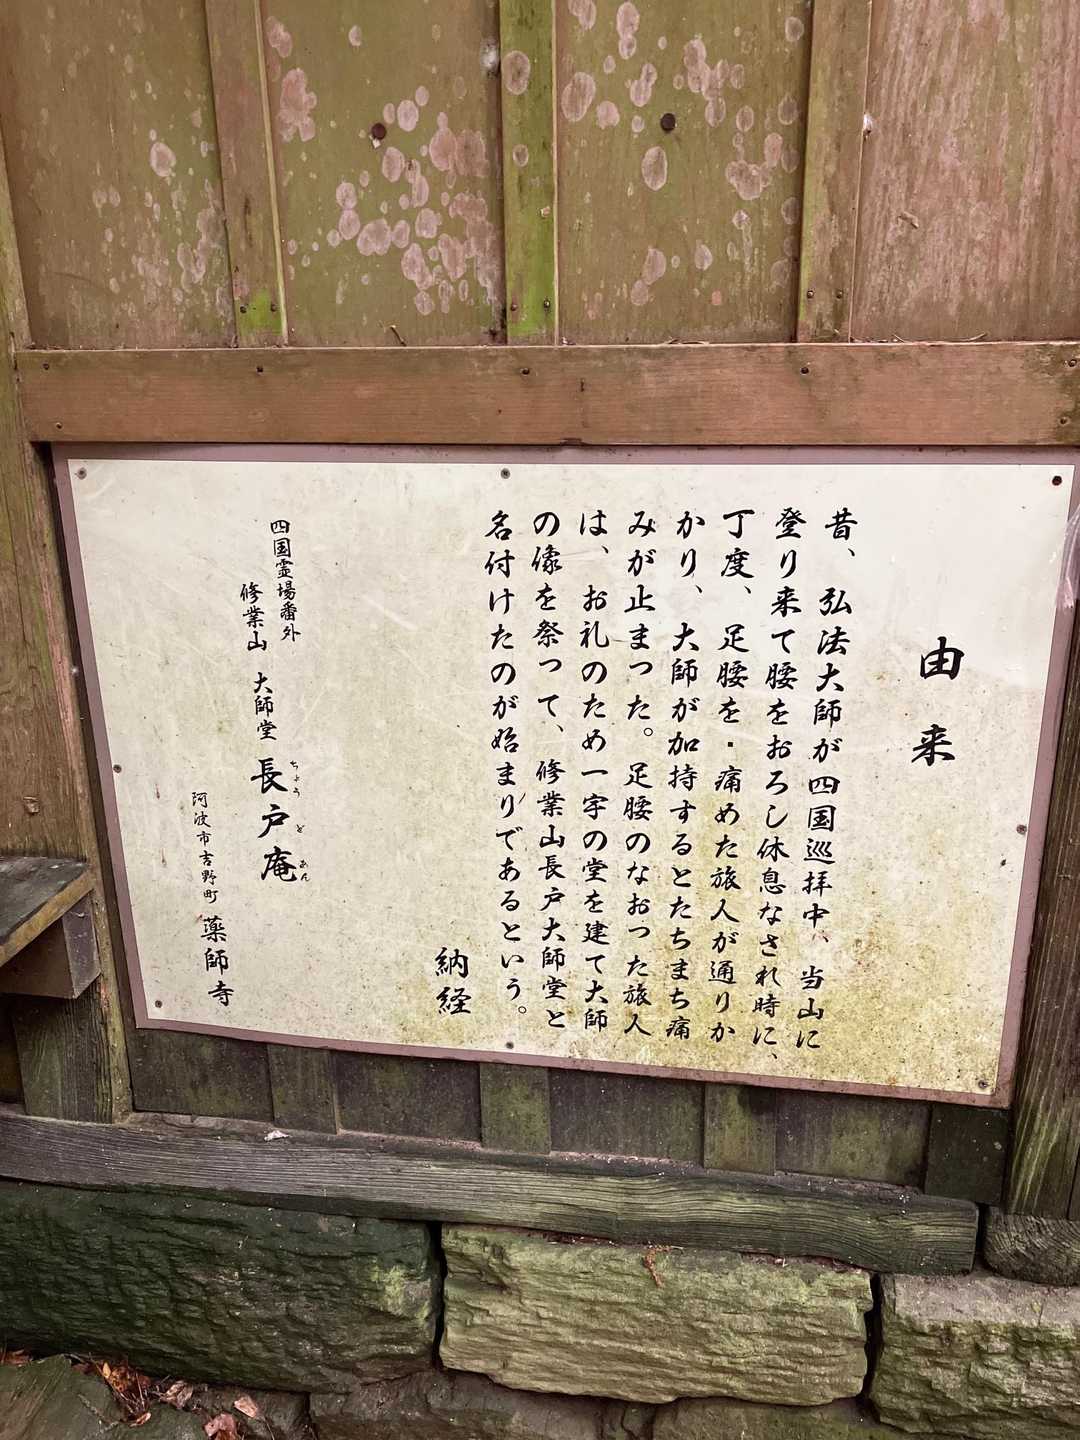 由来
昔、弘法大師が四国巡拝中、当山に
登り来て腰をおろし休息なされ時に、
丁度、足腰を・痛めた旅人が通りか
かり、大師が加持するとたちまち痛
みが止まった。足腰のなおった旅人
は、お礼のため一宇の堂を建て大師
の像を祭って、修業山長戸大師堂と
名付けたのが始まりであるという。
納経
四国霊場番外
修業山 大師堂 長戸庵
ちょうどあん
阿波市吉野町 薬師寺